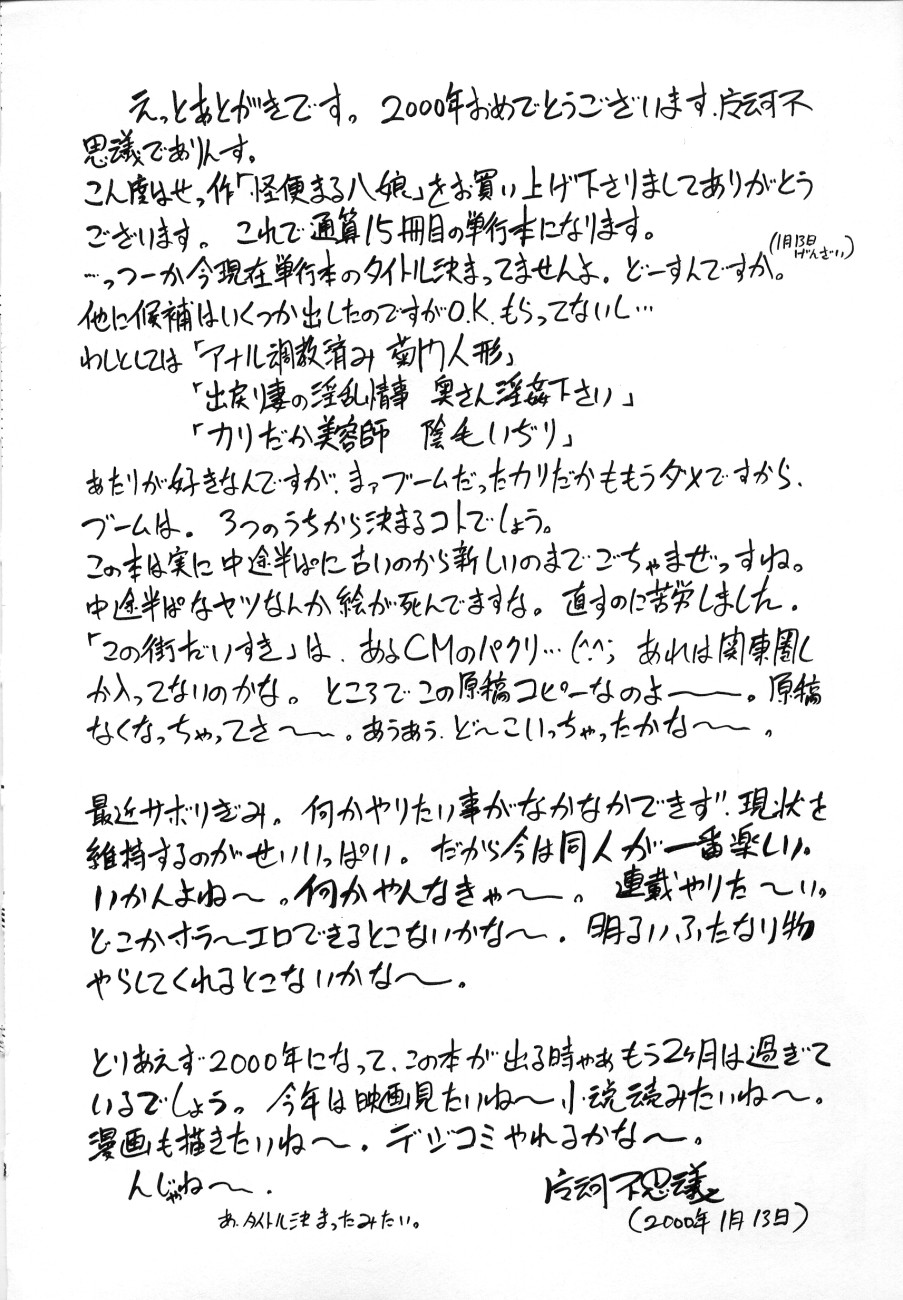 えっとあとがきです。2000年おめでとうございます、唵呵不
思議でありんす。
こん度はせっ作「怪便まる八娘」をお買い上げ下さりましてありがとう
ございます。これで通算15冊目の単行本になります。
…っつーか今現在単行本のタイトル決まってませんよ。どーすんですか。(1月13日げんざい)
他に候補はいくつか出したのですがO.K.もらってないし…
わしとしては「アナル調教済み 菊門人形」
「出戻り妻の淫乱情事 奥さん淫姦下さい」
「カリだか美容師 陰毛いぢり」
あたりが好きなんですが、まァブームだったカリだかももうダメですから、
ブームは。3つのうちから決まるコトでしょう。
この本は実に中途半ぱに古いのから新しいのまでごちゃまぜっすね。
中途半ぱなヤツなんか絵が死んでますな。直すのに苦労しました。
「この街だいすき」は、あるCMのパクリ…(^.^; あれは関東圏し
か入ってないのかな。ところでこの原稿コピーなのよ――。原稿
なくなっちゃってさ～～。あうあう、ど～こいっちゃったかな～～。
最近サボりぎみ。何かやりたい事がなかなかできず、現状を
維持するのがせいいっぱい。だから今は同人が一番楽しい。
いかんよね～。何かやんなきゃ～。連載やりた～い。
どこかホラ～エロできるとこないかな～。明るいふたなり物
やらしてくれるとこないかな～。
とりあえず2000年になって、この本が出る時ゃぁもう2ヶ月は過ぎて
いるでしょう。今年は映画見たいね～小説読みたいね～。
漫画も描きたいね～。デジコミやれるかな～。
んじゃね～。
不思議
あ、タイトル決まったみたい。
(2000年1月13日)